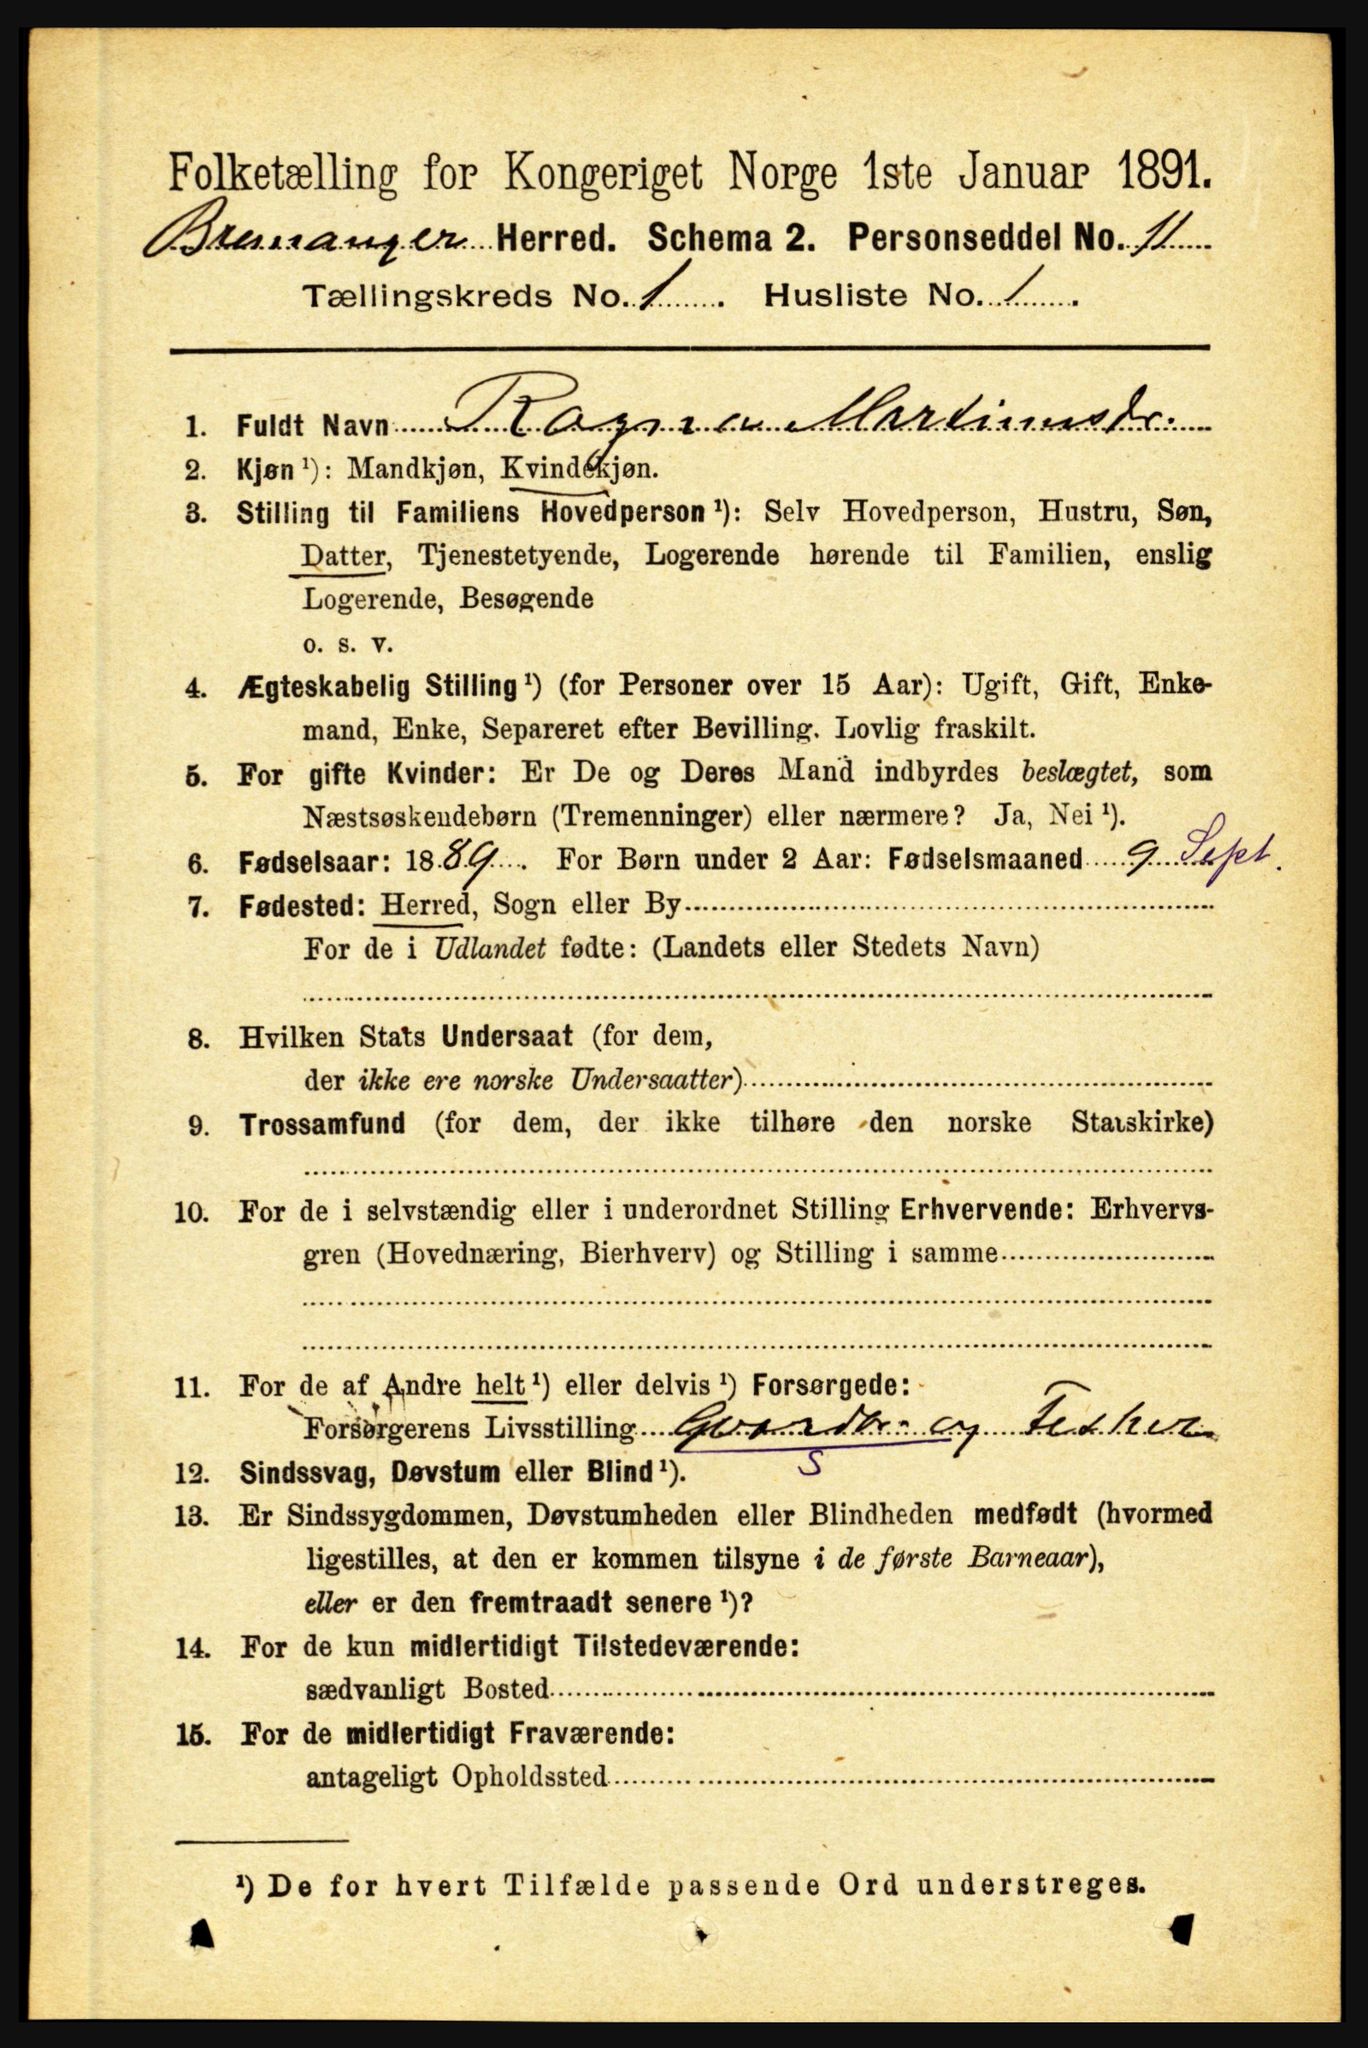 Folketælling for Kongeriget Norge 1ste Januar 1891.
Bremanger Herred. Schema 2. Personseddel No. 11
Tællingskreds No. 1. Husliste No. 1.
1. Fuldt Navn Ragna Martinusdr.
2. Kjøn ¹): Mandkjøn, Kvindekjøn.
3. Stilling til Familiens Hovedperson ¹): Selv Hovedperson, Hustru, Søn,
Datter, Tjenestetyende, Logerende hørende til Familien, enslig
Logerende, Besøgende
o. s. v.
4. Ægteskabelig Stilling ¹) (for Personer over 15 Aar): Ugift, Gift, Enke-
mand, Enke, Separeret efter Bevilling. Lovlig fraskilt.
5. For gifte Kvinder: Er De og Deres Mand indbyrdes beslægtet, som
Næstsøskendebørn (Tremenninger) eller nærmere? Ja, Nei ¹).
6. Fødselsaar: 1889. For Børn under 2 Aar: Fødselsmaaned 9 Sept.
7. Fødested: Herred, Sogn eller By
For de i Udlandet fødte: (Landets eller Stedets Navn)
8. Hvilken Stats Undersaat (for dem,
der ikke ere norske Undersaatter)
9. Trossamfund (for dem, der ikke tilhøre den norske Statskirke)
10. For de i selvstændig eller i underordnet Stilling Erhvervende: Erhvervs-
gren (Hovednæring, Bierhverv) og Stilling i samme
11. For de af Andre helt ¹) eller delvis ¹) Forsørgede:
Forsørgerens Livsstilling Gaardbr. og Fisker
S
12. Sindssvag, Døvstum eller Blind ¹).
13. Er Sindssygdommen, Døvstumheden eller Blindheden medfødt (hvormed
ligestilles, at den er kommen tilsyne i de første Barneaar),
eller er den fremtraadt senere ¹)?
14. For de kun midlertidigt Tilstedeværende:
sædvanligt Bosted
15. For de midlertidigt Fraværende:
antageligt Opholdssted
¹) De for hvert Tilfælde passende Ord understreges.